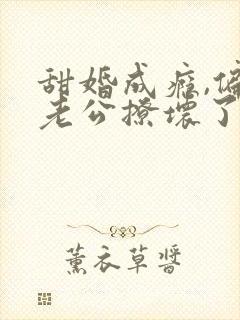 甜婚成瘾,偏
老公撩坏了
薰衣草酱